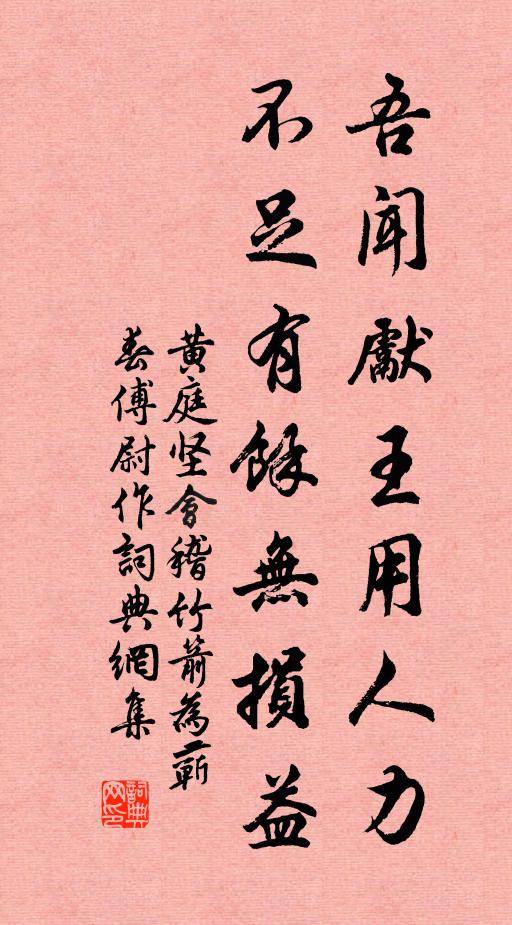 吾闻獻王用人力
不足有餘無損益
黄庭坚會稽竹箭為蘄
春傅尉作詞典網集
詞典网印